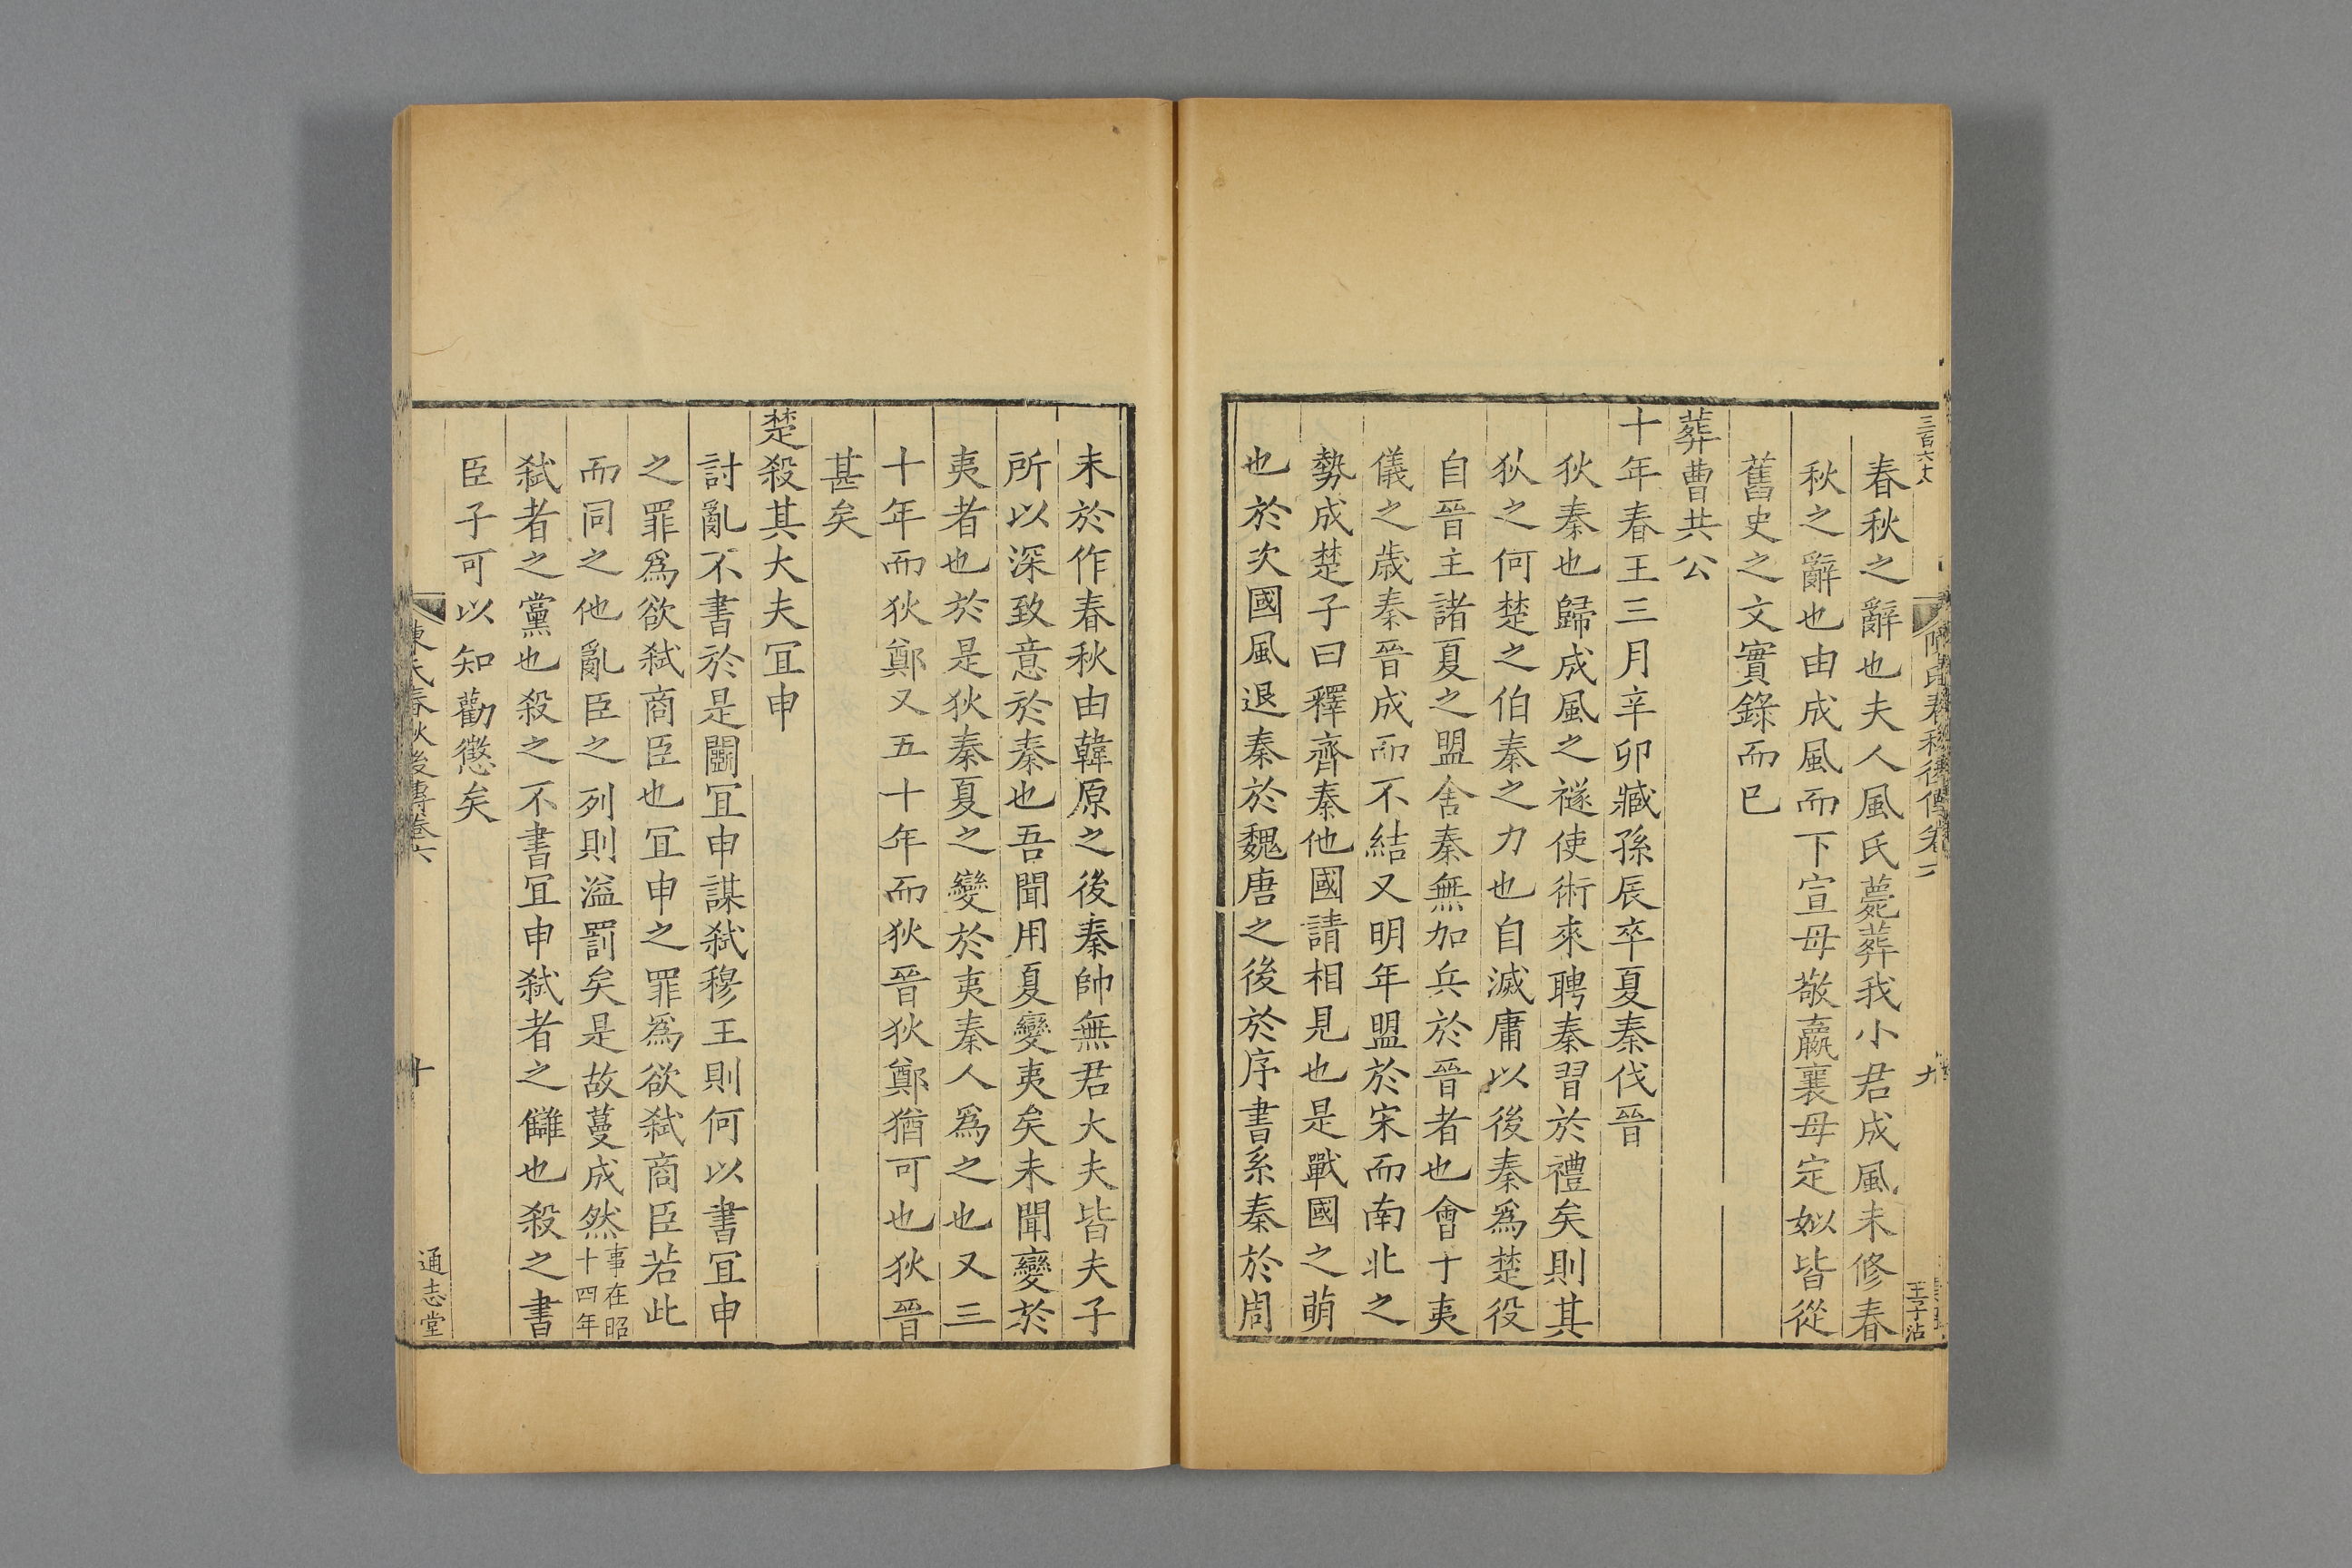 三百六十八
春秋之辭也夫人風氏薨葬我小君成風未修春
秋之辭也由成風而下宣母敬嬴襄母定姒皆從
舊史之文實錄而已
葬曹共公
十年春王三月辛卯臧孫辰卒夏秦伐晉
狄秦也歸成風之襚使術來聘秦習於禮矣則其
狄之何楚之伯秦之力也自滅庸以後秦爲楚役
自晉主諸夏之盟舍秦無加兵於晉者也會于夷
儀之歲秦晉成而不結又明年盟於宋而南北之
勢成楚子曰釋齊秦他國請相見也是戰國之萌
也於次國風退秦於魏唐之後於序書系秦於周
末於作春秋由韓原之後秦帥無君大夫皆夫子
所以深致意於秦也吾聞用夏變夷矣未聞變於
夷者也於是狄秦夏之變於夷秦人爲之也又三
十年而狄鄭又五十年而狄晉狄鄭猶可也狄晉
甚矣
楚殺其大夫冝申
討亂不書於是鬭冝申謀弒穆王則何以書冝申
之罪爲欲弒商臣也冝申之罪爲欲弒商臣若此
而同之他亂臣之列則溢罰矣是故蔓成然事在昭十四年
弒者之黨也殺之不書冝申弒者之讎也殺之書
臣子可以知勸懲矣
陳氏春秋後傳卷六
十
通志堂